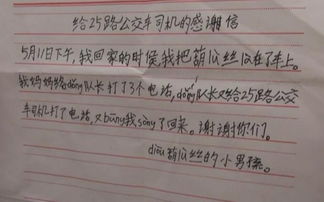 给25路公交车司机的感谢信
5月11日下午，我回家的时候，我把葫芦丝忘在了车上。
我妈妈给dǒng队长打了3个电话，dǒng队长又给25路公交
车司机打了电话，又bāng我sòng了回来。谢谢你们。
diū葫芦丝的小男孩。